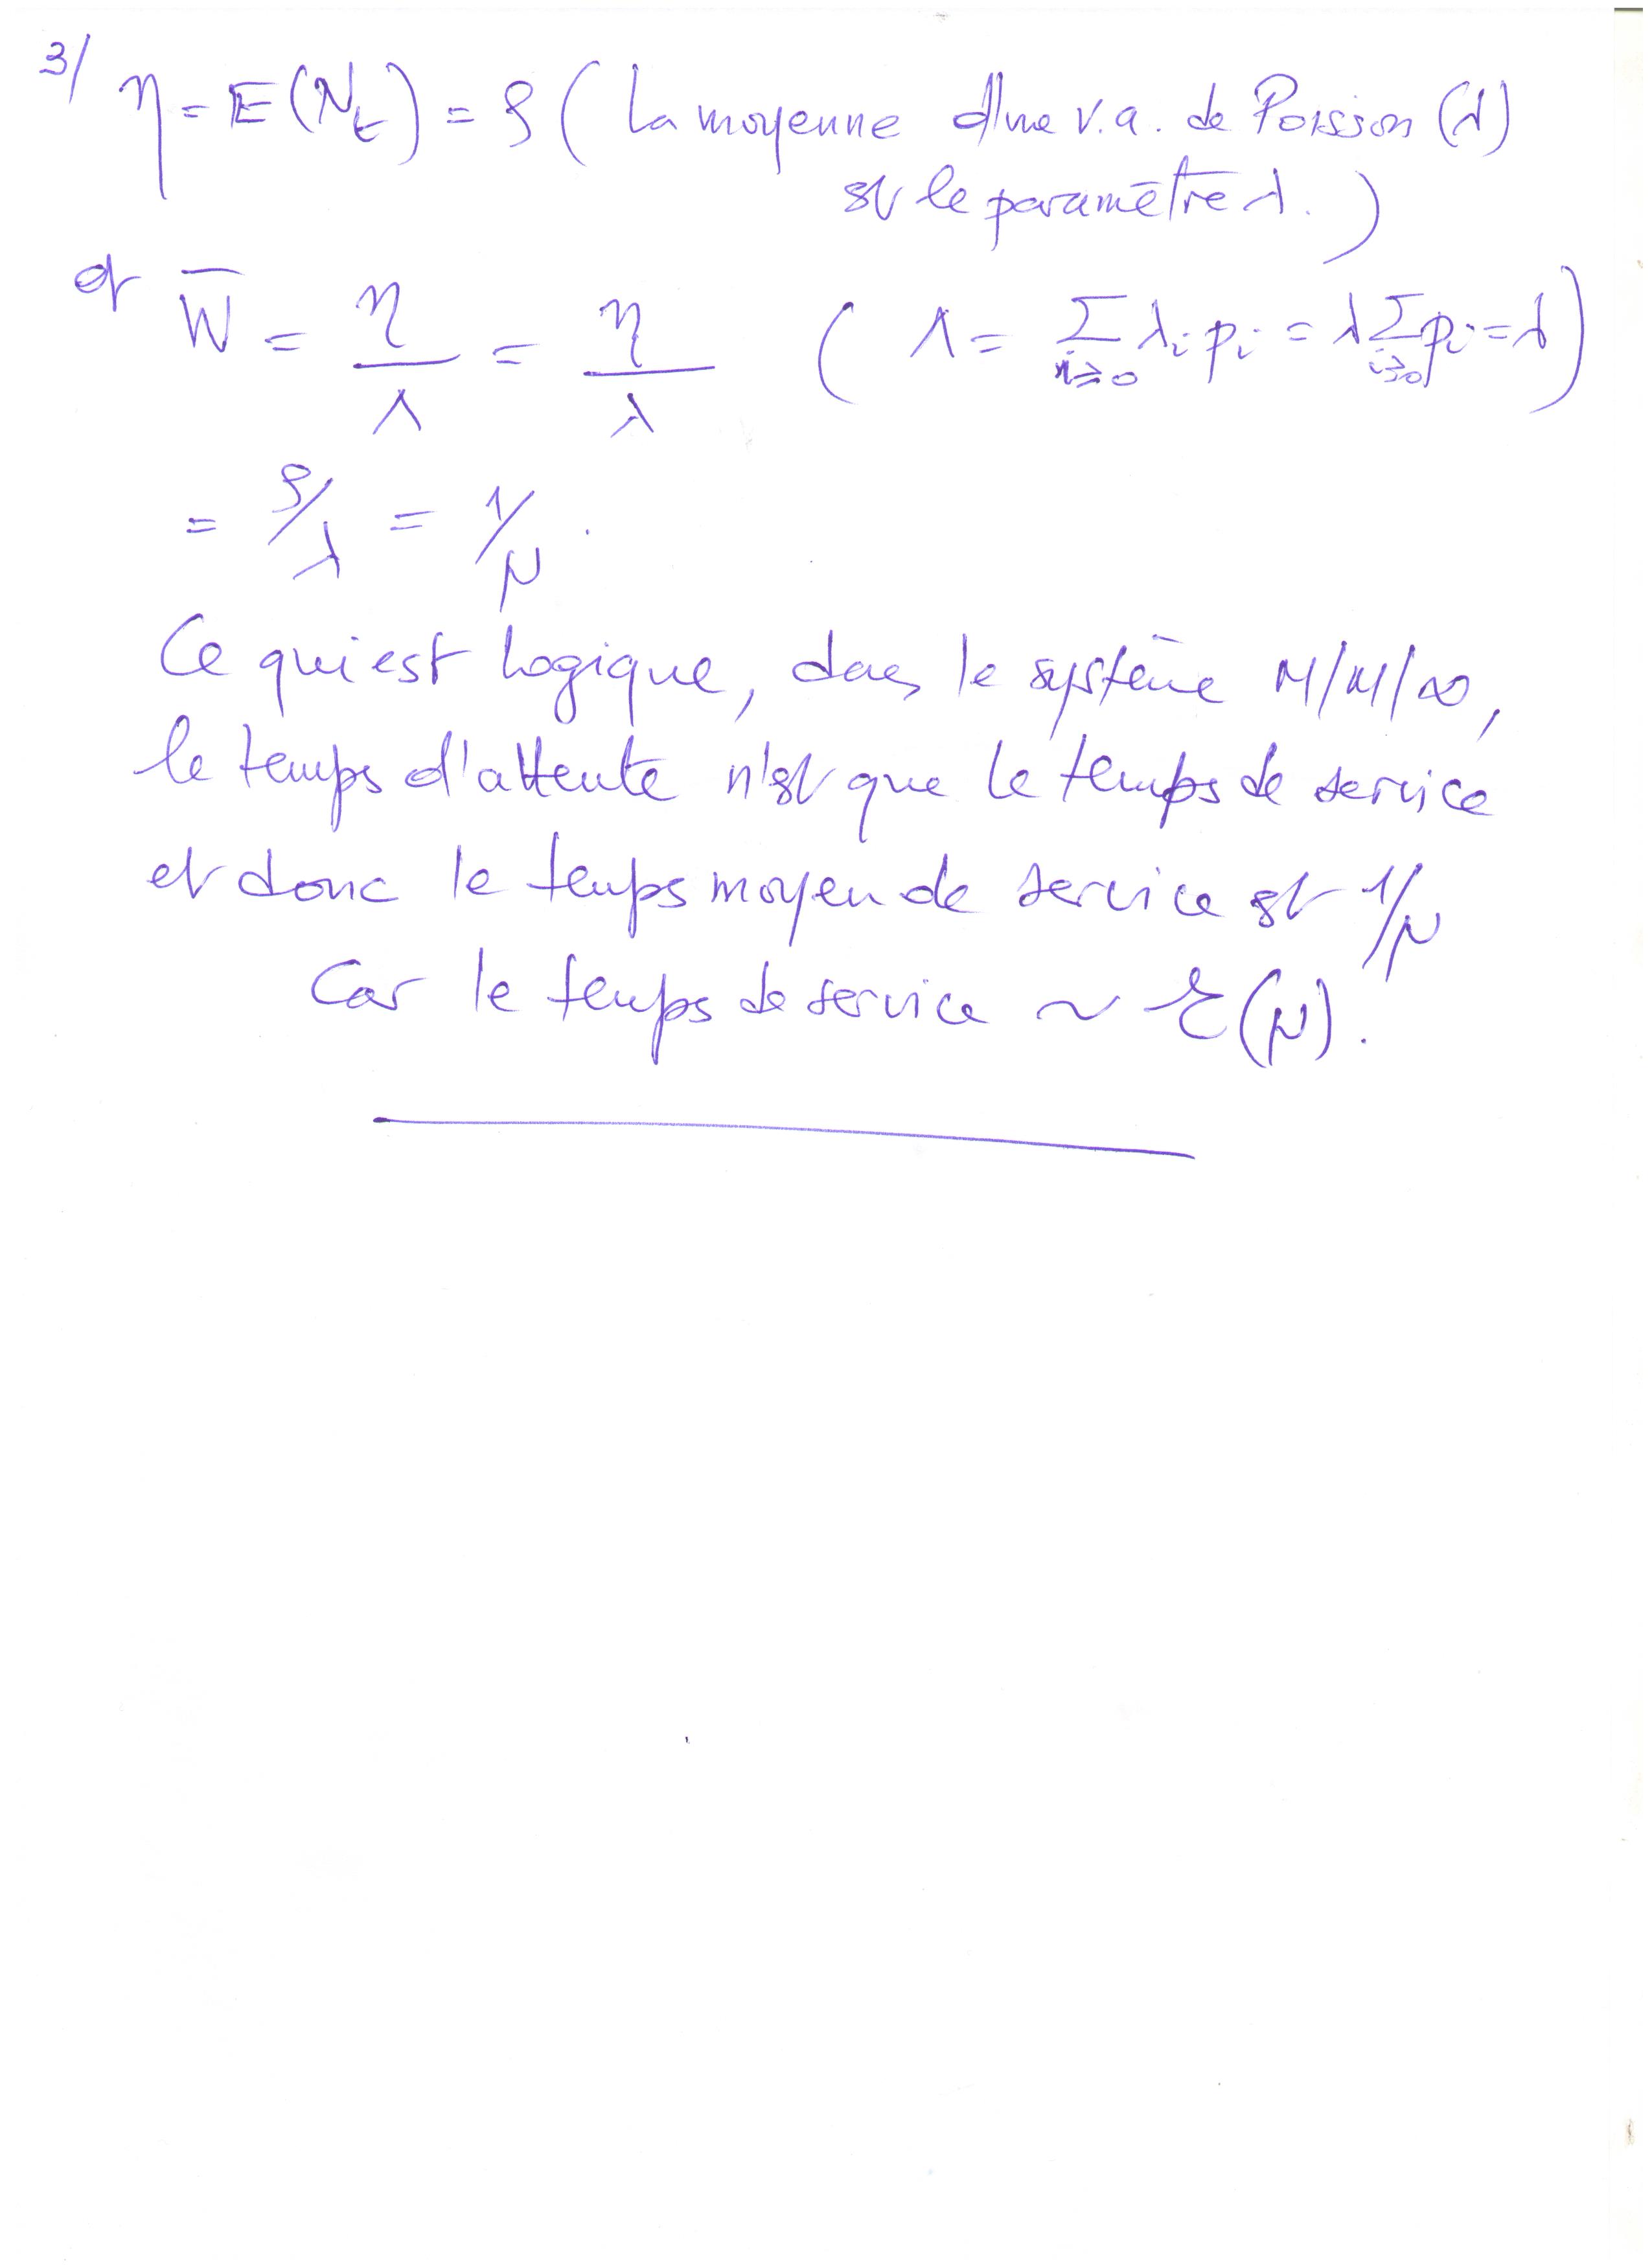 3/ η = E(N_t) = ρ ( La moyenne d'une v.a. de Poisson (λ)
est le paramètre λ. )
et W̄ = η/Λ = η/λ ( Λ = Σ_{i≥0} λ_i p_i = λ Σ_{i≥0} p_i = λ )
= ρ/λ = 1/μ.
Ce qui est logique, dans le système M/M/∞,
le temps d'attente n'est que le temps de service
et donc le temps moyen de service est 1/μ
Car le temps de service ~ ℰ(μ).